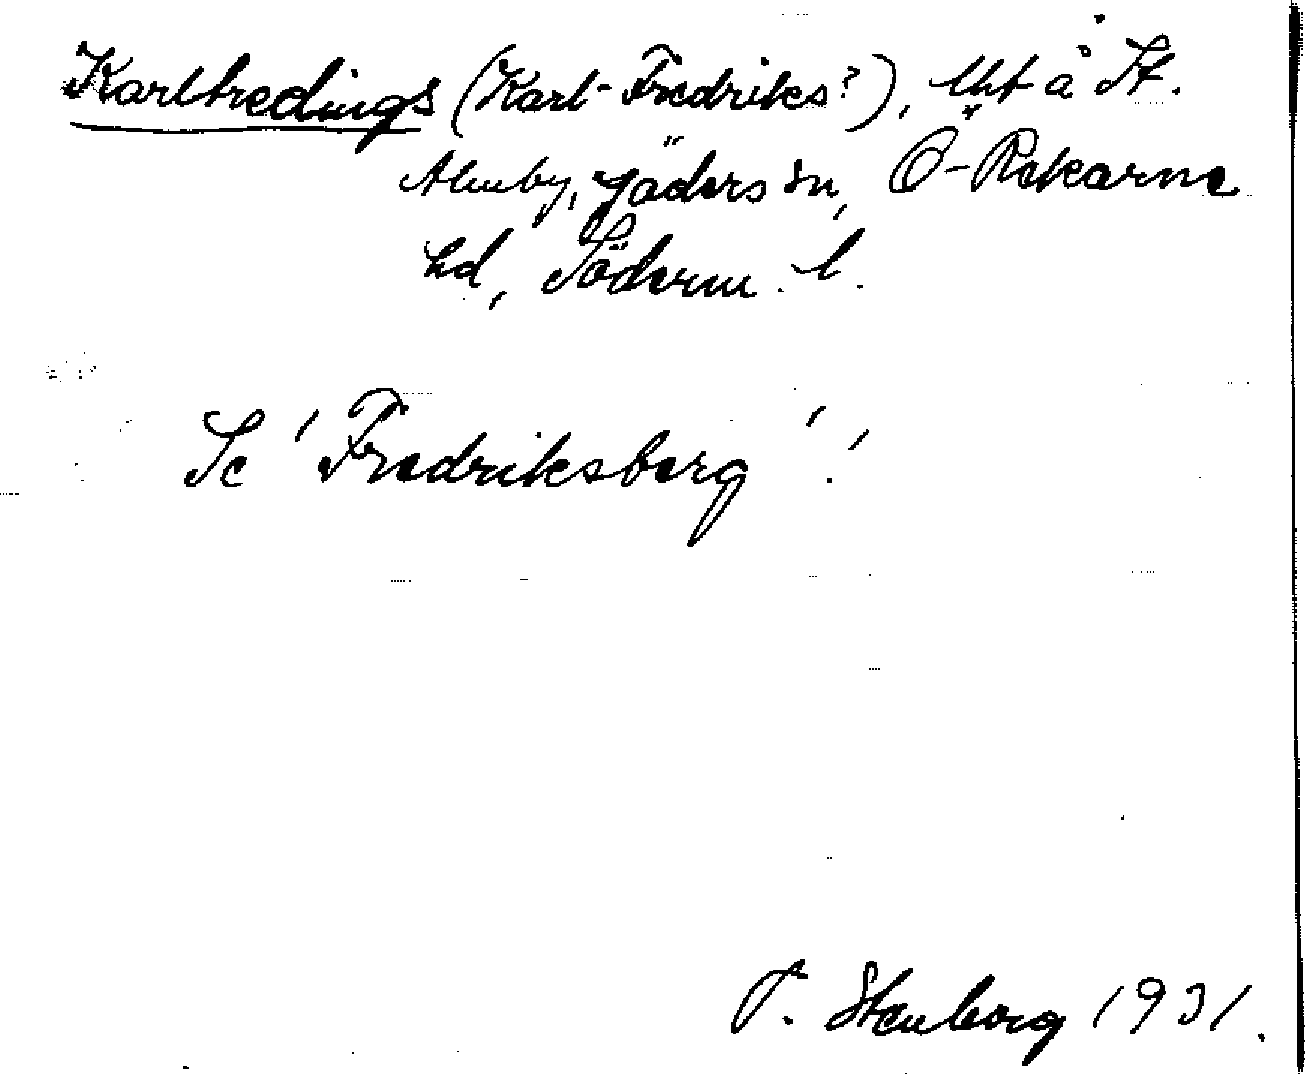 Karlfredings (Karl-Fredriks?), lht å St.
Almby, Jäders sn, Ö-Rekarne
hd, Söderm. l.
Se 'Fredriksberg'!
T. Stenborg 1931.